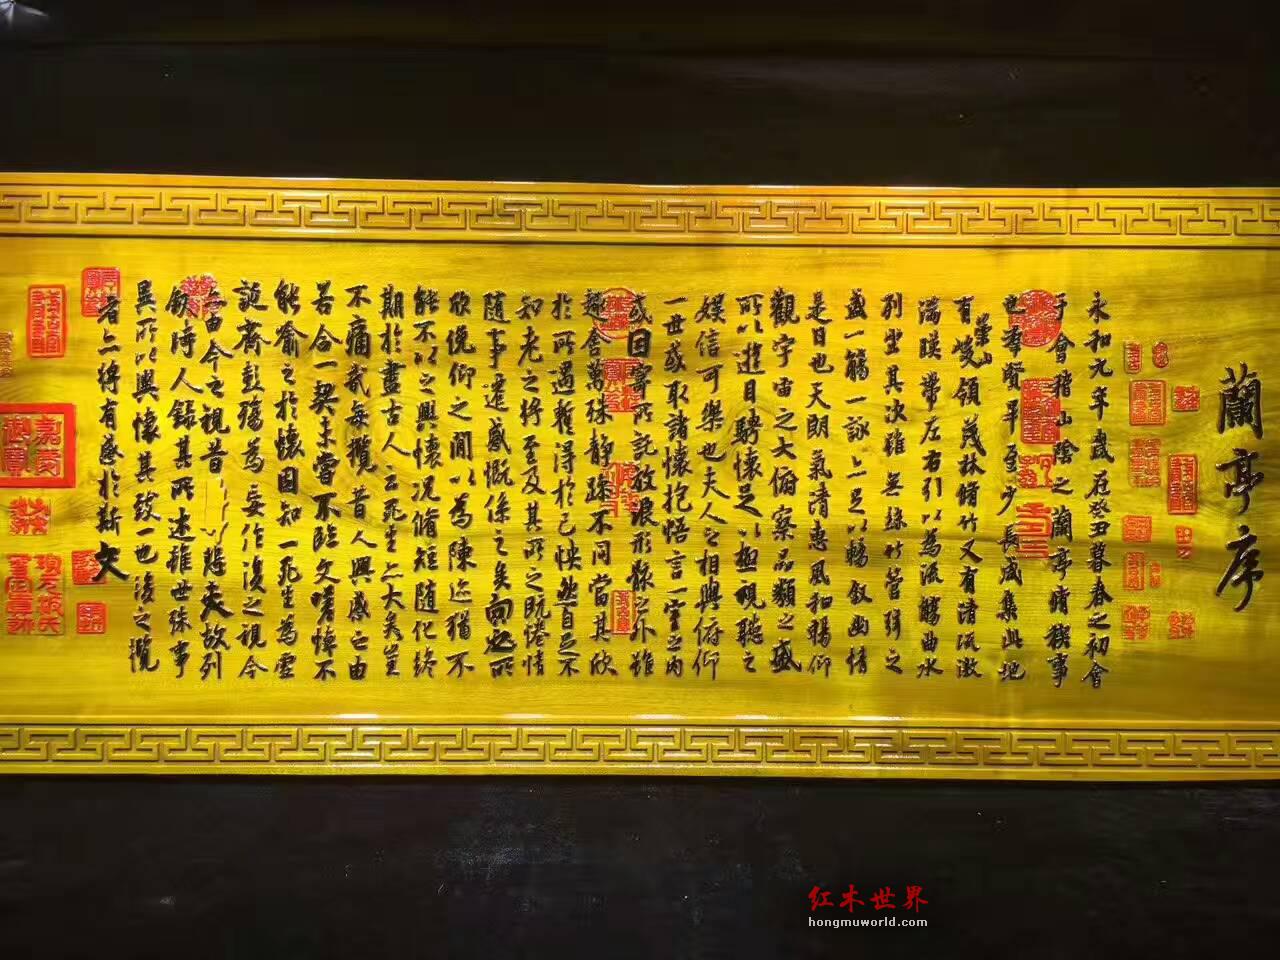 蘭亭序
永和九年歲在癸丑暮春之初會
于會稽山陰之蘭亭脩稧事
也羣賢畢至少長咸集此地
有崇山峻領茂林脩竹又有清流激
湍暎帶左右引以為流觴曲水
列坐其次雖無絲竹管弦之
盛一觴一詠亦足以暢叙幽情
是日也天朗氣清惠風和暢仰
觀宇宙之大俯察品類之盛
所以遊目騁懷足以極視聽之
娱信可樂也夫人之相與俯仰
一世或取諸懷抱悟言一室之内
或因寄所託放浪形骸之外雖
趣舍萬殊静躁不同當其欣
於所遇暫得於己怏然自足不
知老之將至及其所之既惓情
随事遷感慨係之矣向之所
欣俛仰之閒以為陳迹猶不
能不以之興懷况脩短随化終
期於盡古人云死生亦大矣豈
不痛哉每攬昔人興感之由
若合一契未嘗不臨文嗟悼不
能喻之於懷固知一死生為虚
誕齊彭殤為妄作後之視今
亦由今之視昔悲夫故列
叙時人録其所述雖世殊事
異所以興懷其致一也後之攬
者亦將有感於斯文
嘉慶御覽
红木世界
hongmuworld.com